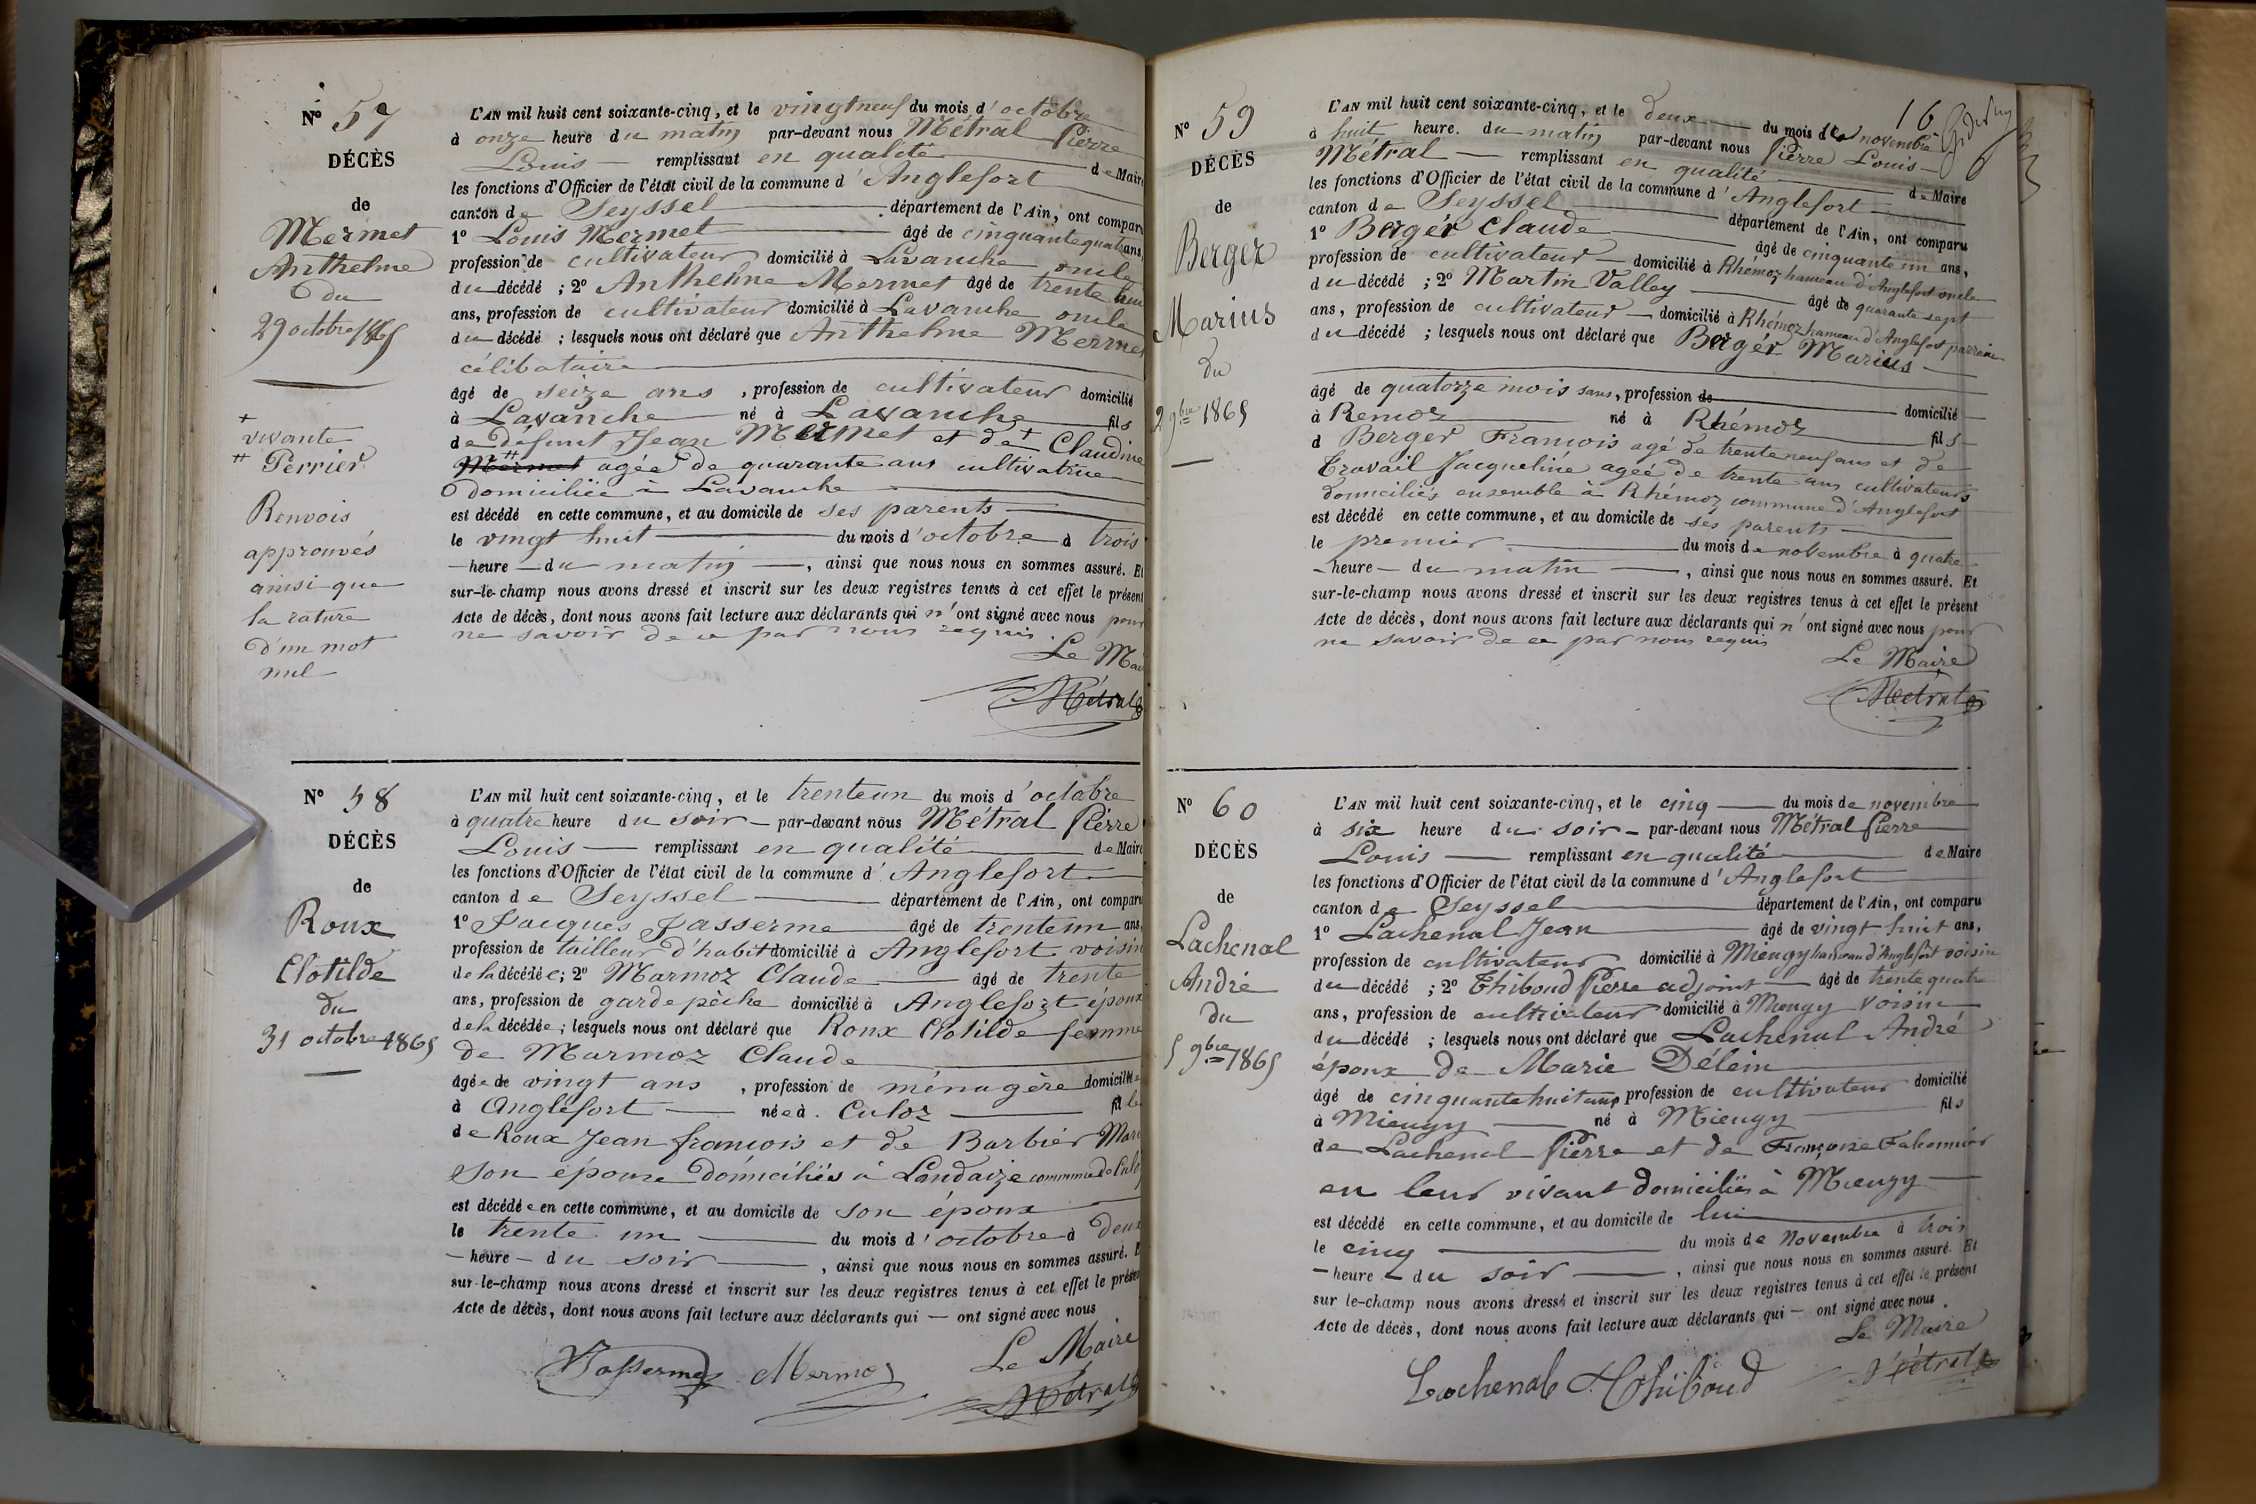 Nº 57
DÉCÈS
de
Mermet
Anthelme
du
29 octobre 1865
+
vivante
# Perrier
Renvois
approuvés
ainsi que
la rature
d'un mot
nul
L'AN mil huit cent soixante-cinq, et le vingt neuf du mois d'octobre
à onze heure du matin par-devant nous Métral Pierre
Louis — remplissant en qualité — de Maire
les fonctions d'Officier de l'état civil de la commune d'Anglefort
canton de Seyssel — département de l'Ain, ont comparu
1º Louis Mermet — âgé de cinquante quatre ans,
profession de cultivateur domicilié à Lavanche oncle
du décédé ; 2º Anthelme Mermet âgé de trente huit
ans, profession de cultivateur domicilié à Lavanche oncle
du décédé ; lesquels nous ont déclaré que Anthelme Mermet
célibataire
âgé de seize ans, profession de cultivateur domicilié
à Lavanche né à Lavanche fils
de défunt Jean Mermet et de + Claudine
Mermet # agée de quarante ans cultivatrice
domiciliée à Lavanche
est décédé en cette commune, et au domicile de ses parents
le vingt huit — du mois d'octobre à trois
— heure — du matin —, ainsi que nous nous en sommes assuré. Et
sur-le-champ nous avons dressé et inscrit sur les deux registres tenus à cet effet le présent
Acte de décès, dont nous avons fait lecture aux déclarants qui n'ont signé avec nous pour
ne savoir de ce par nous requis.
Le Mai
Métral
Nº 58
DÉCÈS
de
Roux
Clotilde
du
31 octobre 1865
L'AN mil huit cent soixante-cinq, et le trente un du mois d'octobre
à quatre heure du soir — par-devant nous Métral Pierre
Louis — remplissant en qualité — de Maire
les fonctions d'Officier de l'état civil de la commune d'Anglefort
canton de Seyssel — département de l'Ain, ont comparu
1º Jacques Jasserme — âgé de trente un ans,
profession de tailleur d'habit domicilié à Anglefort voisin
de la décédée ; 2º Marmoz Claude — âgé de trente
ans, profession de garde pêche domicilié à Anglefort époux
de la décédée ; lesquels nous ont déclaré que Roux Clotilde femme
de Marmoz Claude
âgée de vingt ans, profession de ménagère domiciliée
à Anglefort — née à Culoz — fille
de Roux Jean françois et de Barbier Mari
son épouse domiciliés à Landaize commune de Culo
est décédée en cette commune, et au domicile de son époux
le trente un — du mois d'octobre à deux
— heure — du soir —, ainsi que nous nous en sommes assuré. E
sur-le-champ nous avons dressé et inscrit sur les deux registres tenus à cet effet le présen
Acte de décès, dont nous avons fait lecture aux déclarants qui — ont signé avec nous
Le Maire
Jasserme Mermoz Métral
16
Nº 59
DÉCÈS
de
Berger
Marius
du
2 9bre 1865
L'AN mil huit cent soixante-cinq, et le deux — du mois de novembre
à huit heure. du matin par-devant nous Pierre Louis
Métral — remplissant en qualité — de Maire
les fonctions d'Officier de l'état civil de la commune d'Anglefort
canton de Seyssel — département de l'Ain, ont comparu
1º Berger Claude — âgé de cinquante un ans,
profession de cultivateur — domicilié à Rhémoz hameau d'Anglefort oncle
du décédé ; 2º Martin Valley — âgé de quarante sept
ans, profession de cultivateur — domicilié à Rhémoz hameau d'Anglefort parrain
du décédé ; lesquels nous ont déclaré que Berger Marius
âgé de quatorze mois sans, profession de — domicilié
à Remoz né à Rhémoz fils
d Berger François agé de trente neuf ans et de
Travail Jacqueline agée de trente ans cultivateurs
domiciliés ensemble à Rhémoz commune d'Anglefort
est décédé en cette commune, et au domicile de ses parents
le premier — du mois de novembre à quatre
— heure — du matin —, ainsi que nous nous en sommes assuré. Et
sur-le-champ nous avons dressé et inscrit sur les deux registres tenus à cet effet le présent
Acte de décès, dont nous avons fait lecture aux déclarants qui n'ont signé avec nous pour
ne savoir de ce par nous requis
Le Maire
Métral
Nº 60
DÉCÈS
de
Lachenal
André
du
5 9bre 1865
L'AN mil huit cent soixante-cinq, et le cinq — du mois de novembre
à six heure du soir — par-devant nous Métral Pierre
Louis — remplissant en qualité — de Maire
les fonctions d'Officier de l'état civil de la commune d'Anglefort
canton de Seyssel — département de l'Ain, ont comparu
1º Lachenal Jean — âgé de vingt huit ans,
profession de cultivateur domicilié à Miengy hameau d'Anglefort voisin
du décédé ; 2º Thiboud Pierre adjoint — âgé de trente quatre
ans, profession de cultivateur domicilié à Miengy voisin
du décédé ; lesquels nous ont déclaré que Lachenal André
époux de Marie Délein
âgé de cinquante huit ans profession de cultivateur domicilié
à Miengy — né à Miengy — fils
de Lachenal Pierre et de Françoise
en leur vivant domiciliés à Miengy
est décédé en cette commune, et au domicile de lui
le cinq — du mois de Novembre à trois
— heure — du soir —, ainsi que nous nous en sommes assuré. Et
sur le-champ nous avons dressé et inscrit sur les deux registres tenus à cet effet le présent
Acte de décès, dont nous avons fait lecture aux déclarants qui — ont signé avec nous.
Le Maire
Lachenal Thiboud Métral